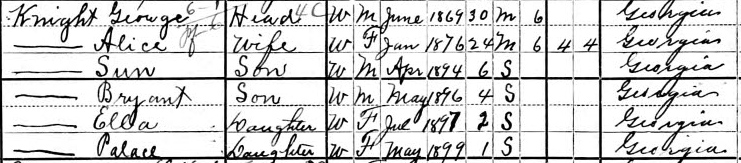 Knight George Head W M June 1869 30 M 6 Georgia
— Alice Wife W F Jan 1876 24 M 6 4 4 Georgia
— Sun Son W M Apr 1894 6 S Georgia
— Bryant Son W M May 1896 4 S Georgia
— Ella Daughter W F Jul 1897 2 S Georgia
— Palace Daughter W F May 1899 1 S Georgia